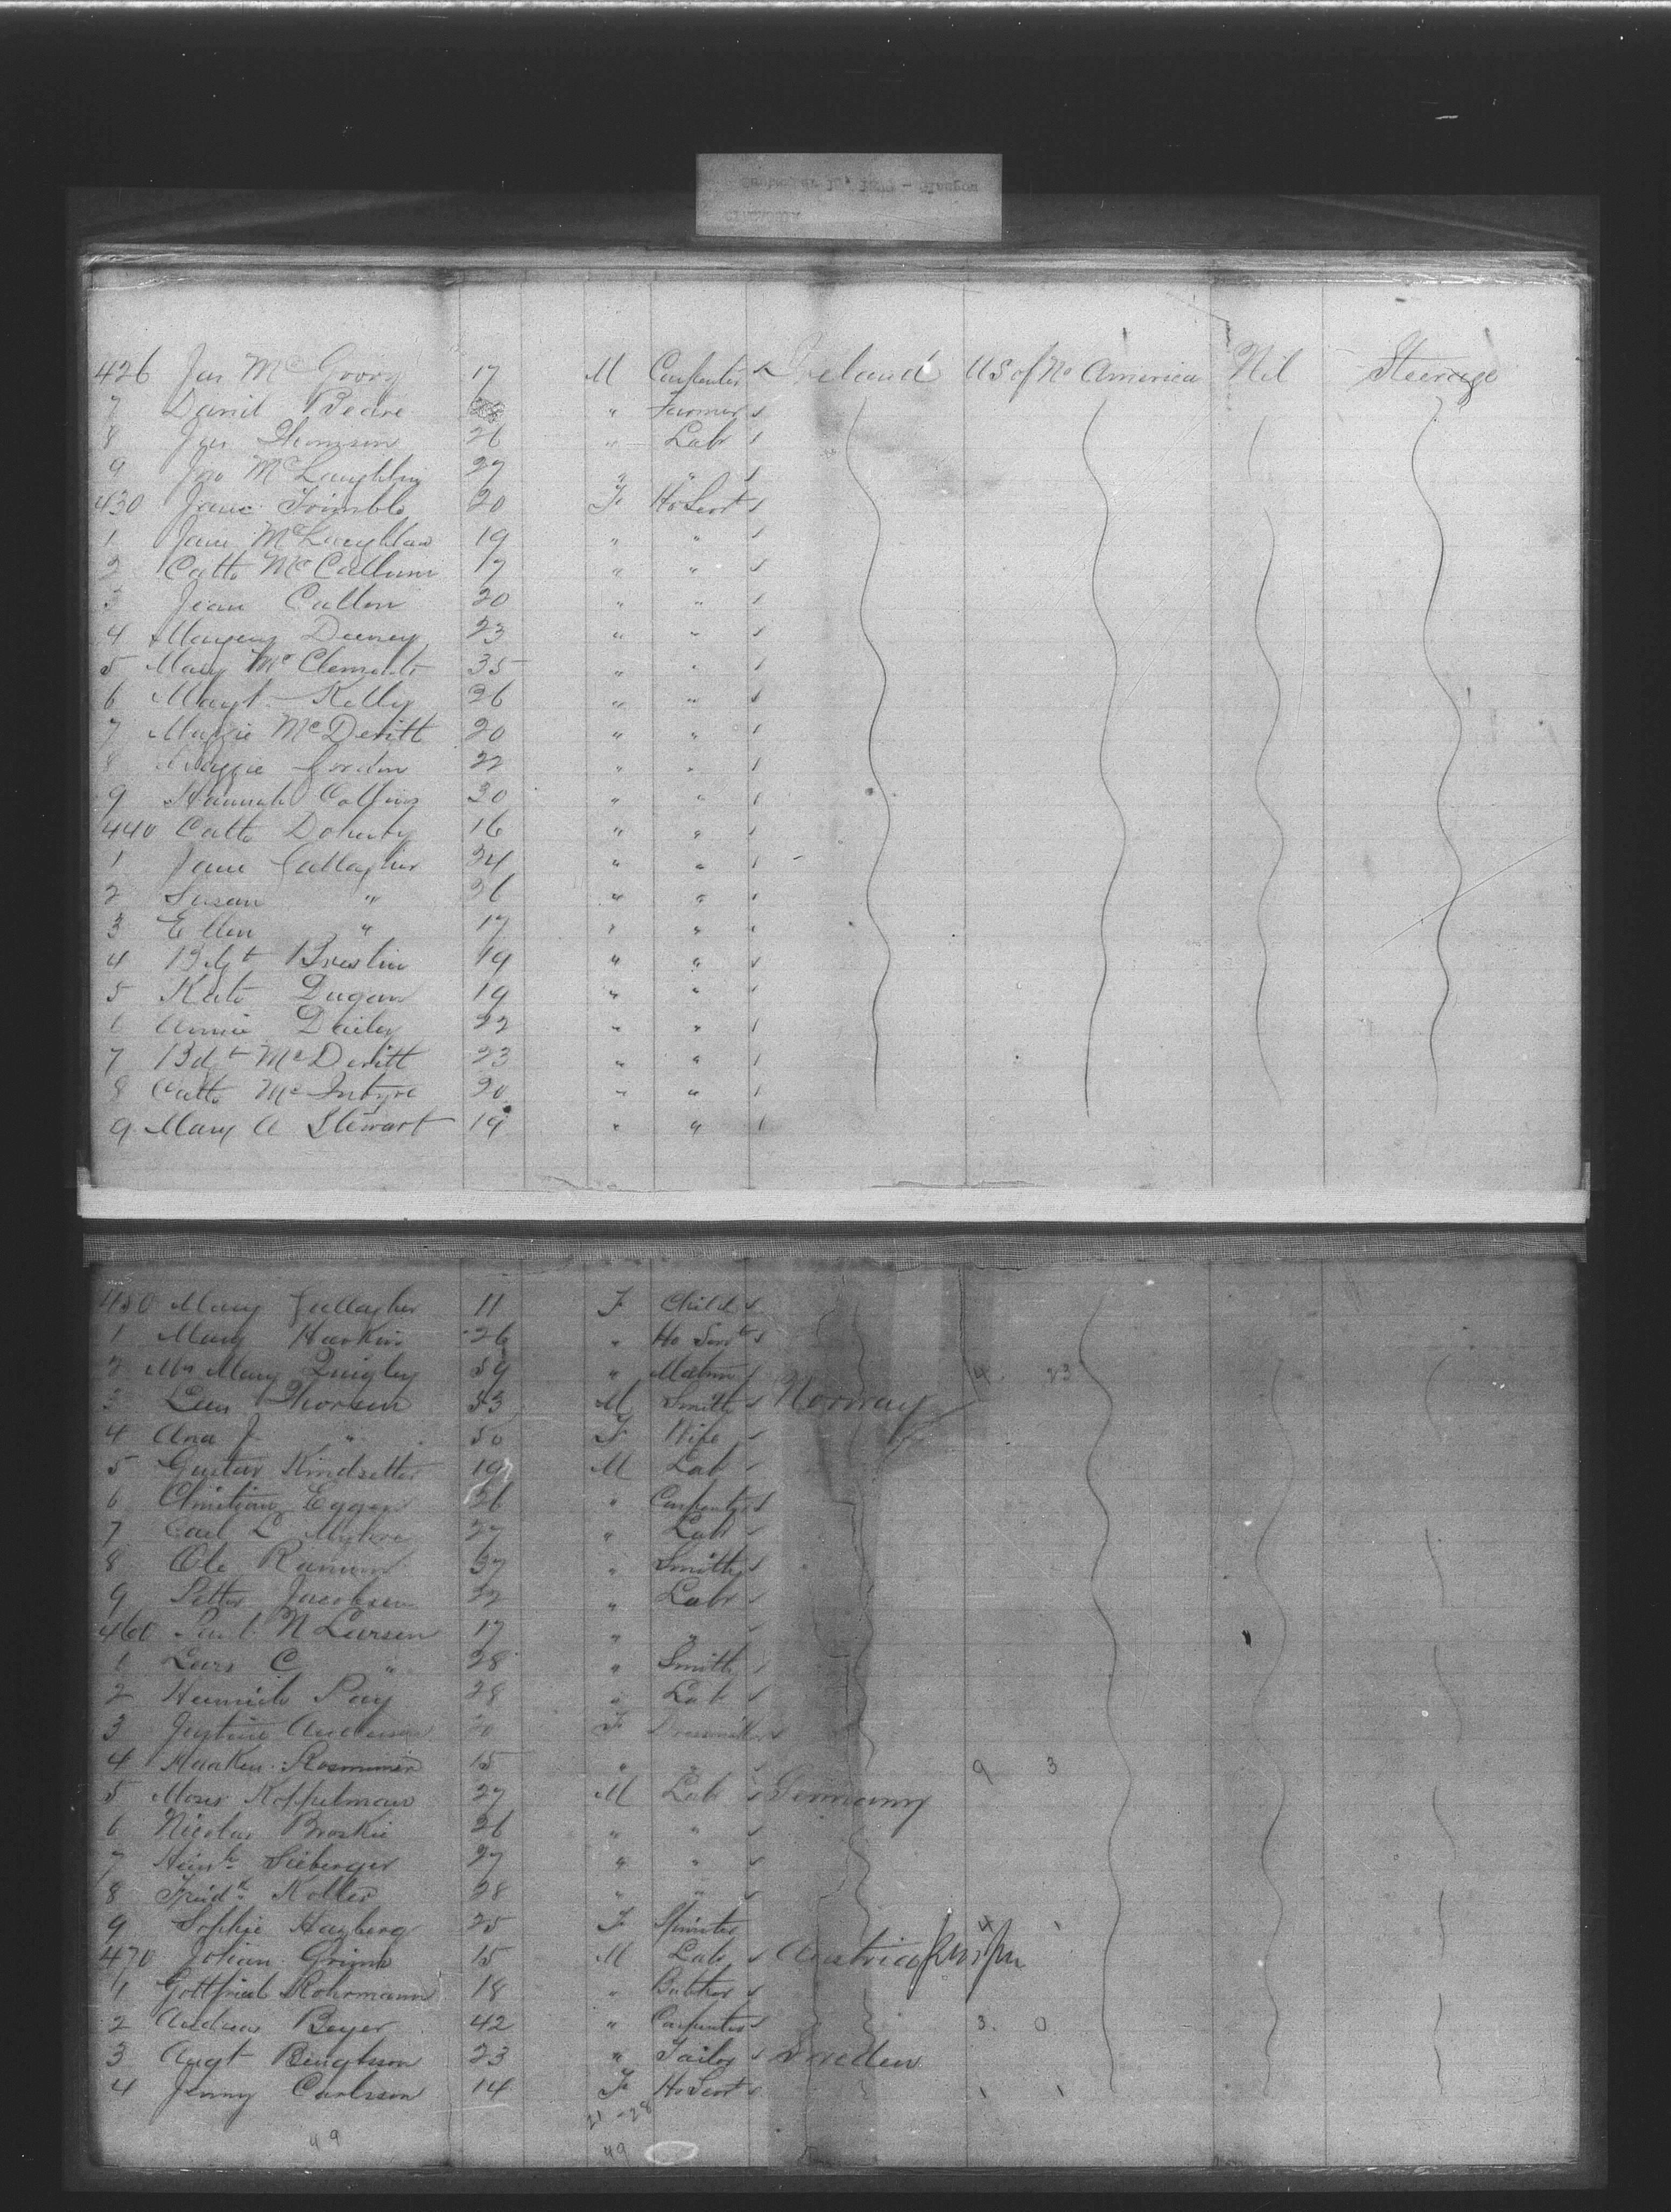 426 Jas McGrory 17 M Carpenter Ireland US of No America Nil Steerage
7 Danil Beare " Farmer
8 Jas Thomson 26 " Labr
9 Jno McLaughlin 27 " "
430 Jane Trimble 20 F Ho Servt
1 Jane McLaughlan 19 " "
2 Cath McCallum 17 " "
3 Jean Callon 20 " "
4 23 " "
5 Mary McClements 35 " "
6 Magt Kelly 26 " "
7 Maggie McDevitt 20 " "
8 Maggie Gordon 22 " "
9 Hannah Collins 30 " "
440 Cath Doherty 16 " "
1 Jane Gallagher 24 " "
2 Susan " 26 " "
3 Ellen " 17 " "
4 Bdgt Breslin 19 " "
5 Kate Dugan 19 " "
6 Annie Dailey 22 " "
7 Bdgt McDevitt 23 " "
8 Cath McIntyre 20 " "
9 Mary A Stewart 19 " "
450 Mary Gallagher 11 F Child
1 Mary Harkin 26 " Ho Servt
2 Mrs Mary Quigley 59 " Matron 4 23
3 Lars Thorsen 53 M Smith Norway
4 Ana J " 50 F Wife
5 Gustav Kindsetter 19 M Lab
6 Christian Egger 26 " Carpenter
7 Carl L Myhre 27 " Labr
8 Ole 37 " Smith
9 Petter Jacobsen 22 " Labr
460 Paul N Larsen 17 " "
1 Lars C " 28 " Smith
2 Heinrich Pay 28 " Lab
3 Justine Anderson 20 F
4 Haaken 15 " " 9 3
5 Moses Koppelman 27 M Lab Germany
6 Nicolas Broskie 26 " "
7 Heinh Sieberger 27 " "
8 Fridk Koller 28 " "
9 Sophie Hagberg 25 F Spinster
470 Johan Grimm 15 M Lab Austria
1 Gottfried Rohrmann 18 " Butcher
2 Andreas Beyer 42 " Carpenter 3 0
3 Augt Bengtsson 23 " Tailor Sweden
4 Jenny Carlsson 14 F Ho Servt 1 1
21-28
49 49